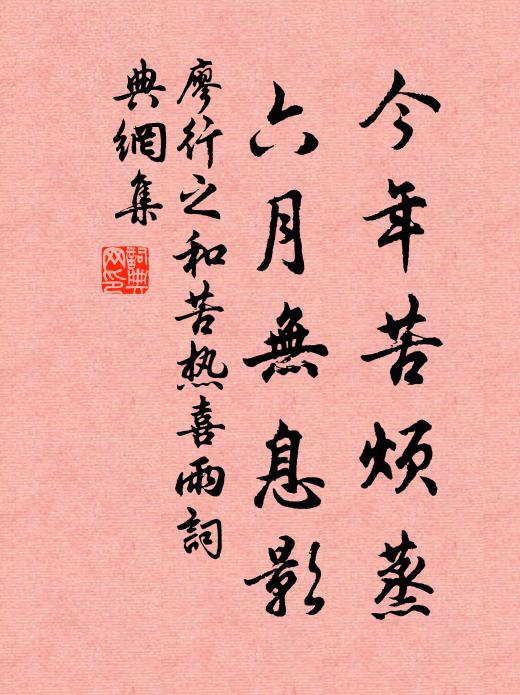 今年苦煩蒸
六月無息影
廖行之和苦热喜雨詞
典網集
詞典
网印